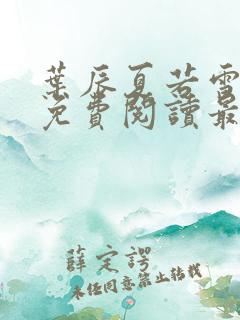 葉辰夏若雪
免費閱讀最
薛定諤
未經同意禁止轉載